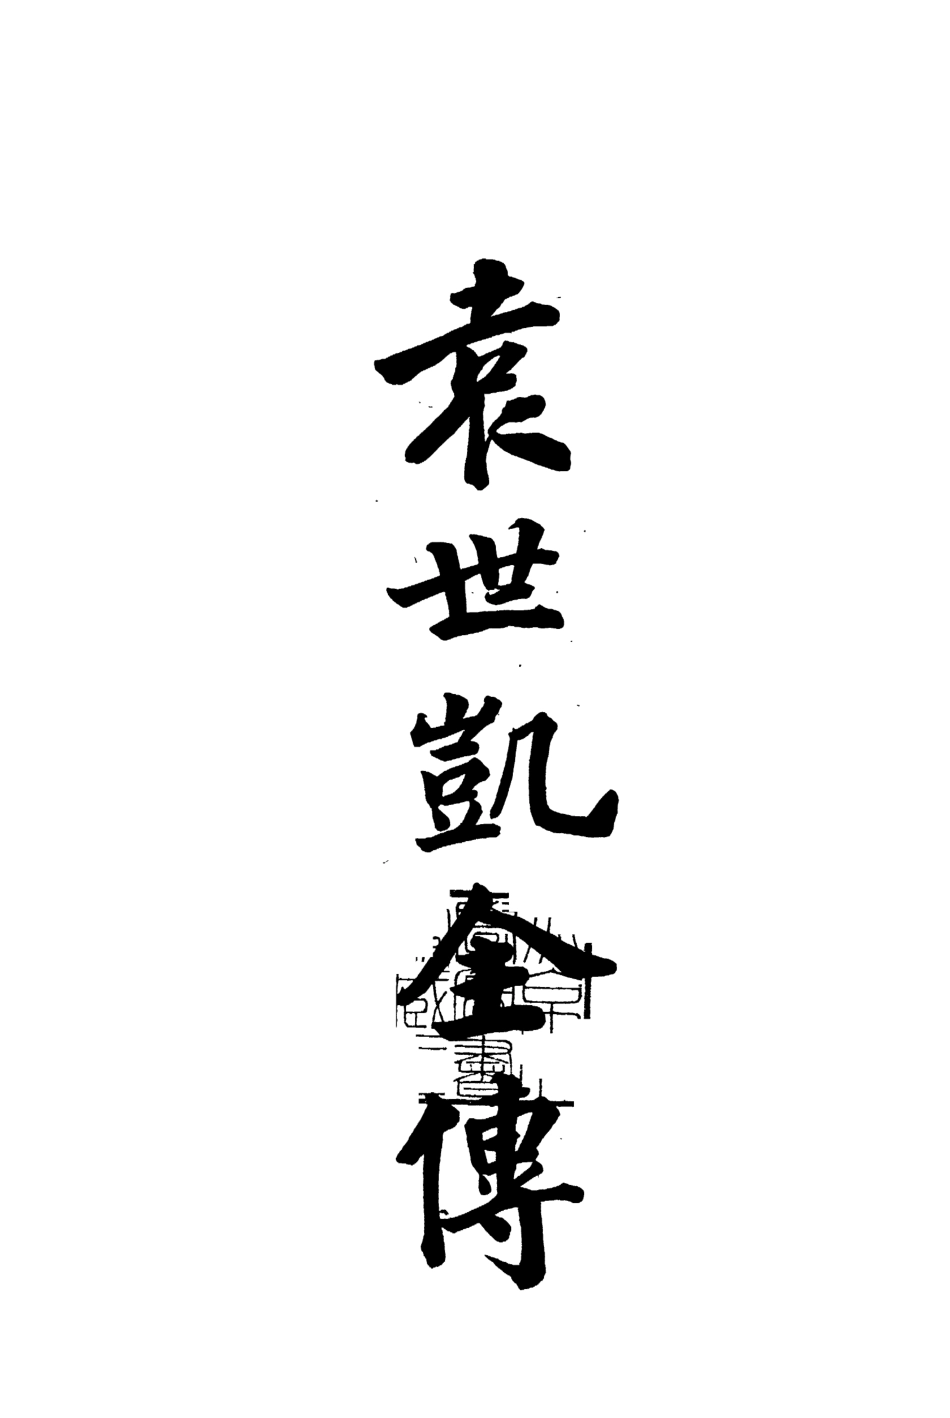 袁世凱全傳